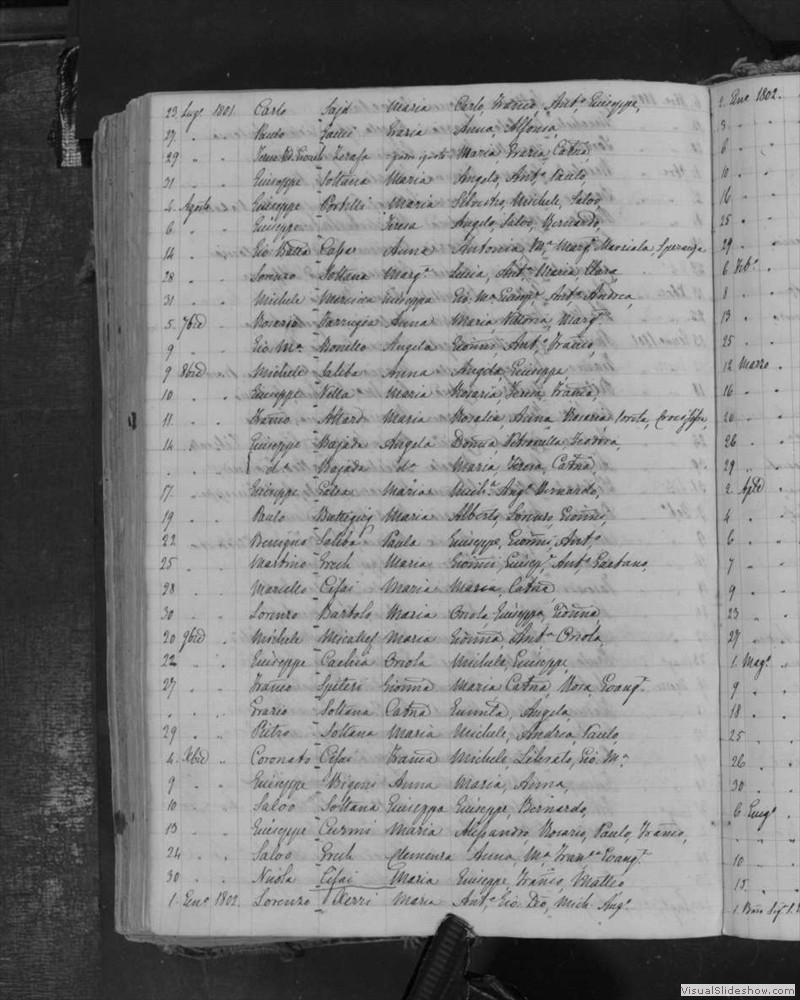 23. Lug.º 1801. Carlo Sajd Maria Carlo, Franco, Ant.º Giuseppe,
27. " " Paulo Zaria Anna, Alfonsa,
29. " " Zerafa Maria Grazia, Catna,
31 " " Giuseppe Soltana Maria Angela, Ant.º Paulo
4. Agosto " Giuseppe Portelli Maria Silvestro, Michele, Salvo,
6. " " Giuseppe Teresa Angelo, Salvo, Bernardo,
14. " " Gio Batta Anna Antonia, M.ª Marg.ª Speranza
28. " " Lorenzo Soltana Marg.ª Lucia, Ant.ª Maria Clara
31 " " Michele Giuseppa Gio. M.ª Ant.º Andrea,
5. 7bre " Rosario Farrugia Anna Maria, Vittoria, Marg.ª
9 " " Gio. M.ª Bonello Angela Gionni, Ant.º Franco,
9 8bre " Michele Saliba Anna Angela, Giuseppe
10 " " Giuseppe Vella Maria Rosaria, Teresa, Franca,
11. " " Franco Attard Maria Rosalia, Anna, Rosaria
14. " " Giuseppe Bajada Angela Petronella Teodora,
" " " d.º Bajada d.ª Maria, Teresa, Catna,
17. " " Giuseppe Galea Maria Mich.e Ang.º Bernardo,
19 " " Paulo Buttigieg Maria Alberto, Lorenzo, Gionni,
22 " " Benigno Saliba Paula Giuseppe, Gionni, Ant.º
25 " " Martino Grech Maria Gionni, Giusep.e Ant.º Gaetano,
28 " " Marcello Cefai Maria Maria, Catna,
30 " " Lorenzo Bartolo Maria Orsola Giuseppa, Gionna
20 9bre " Michele Micallef Maria Gionna, Ant.ª Orsola,
22 " " Giuseppe Cachia Orsola Michele, Giuseppe,
27 " " Franco Spiteri Gionna Maria Catna, Rosa, Evang.ª
" " " Grazio Soltana Catna Angela,
29 " " Pietro Soltana Maria Michele, Andrea Paulo
4. Xbre " Coronato Cefai Franca Michele Liberato, Gio M.ª
9 " " Giuseppe Bigeni Anna Maria, Anna,
10 " " Salvo Soltana Giuseppa Giuseppe, Bernardo,
13 " " Giuseppe Curmi Maria Alessandro, Rosario, Paulo, Franco,
24 " " Salvo Grech Clemenza Anna, M.ª Fran.ca Evang.ª
30 " " Nicola Cefai Maria Giuseppe Franco, Matteo
1. Gen.º 1802. Lorenzo Xerri Maria Ant.º Gio. Mich. Ang.º
2. Gen.º 1802.
3 " "
6 " "
10 " "
16 " "
25 " "
29 " "
6 Feb.º "
8 " "
13 " "
25 " "
12 Marzo "
16 " "
20 " "
26 " "
29 " "
2. Aple "
4 " "
6 " "
7 " "
9 " "
23 " "
27 " "
1. Mag.º "
9 " "
18 " "
25 " "
26 " "
30 " "
6. Giug.º
10 " "
15 " "
VisualSlideshow.com